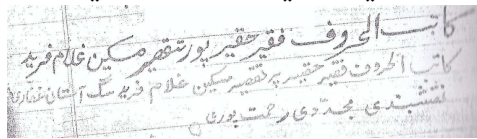 کاتب الحروف فقیر حقیر پور تقصیر مسکین غلام فرید
کاتب الحروف فقیر حقیر پر تقصیر مسکین غلام فرید سگ آستان غفاری
نقشبندی مجددی رحمت پوری